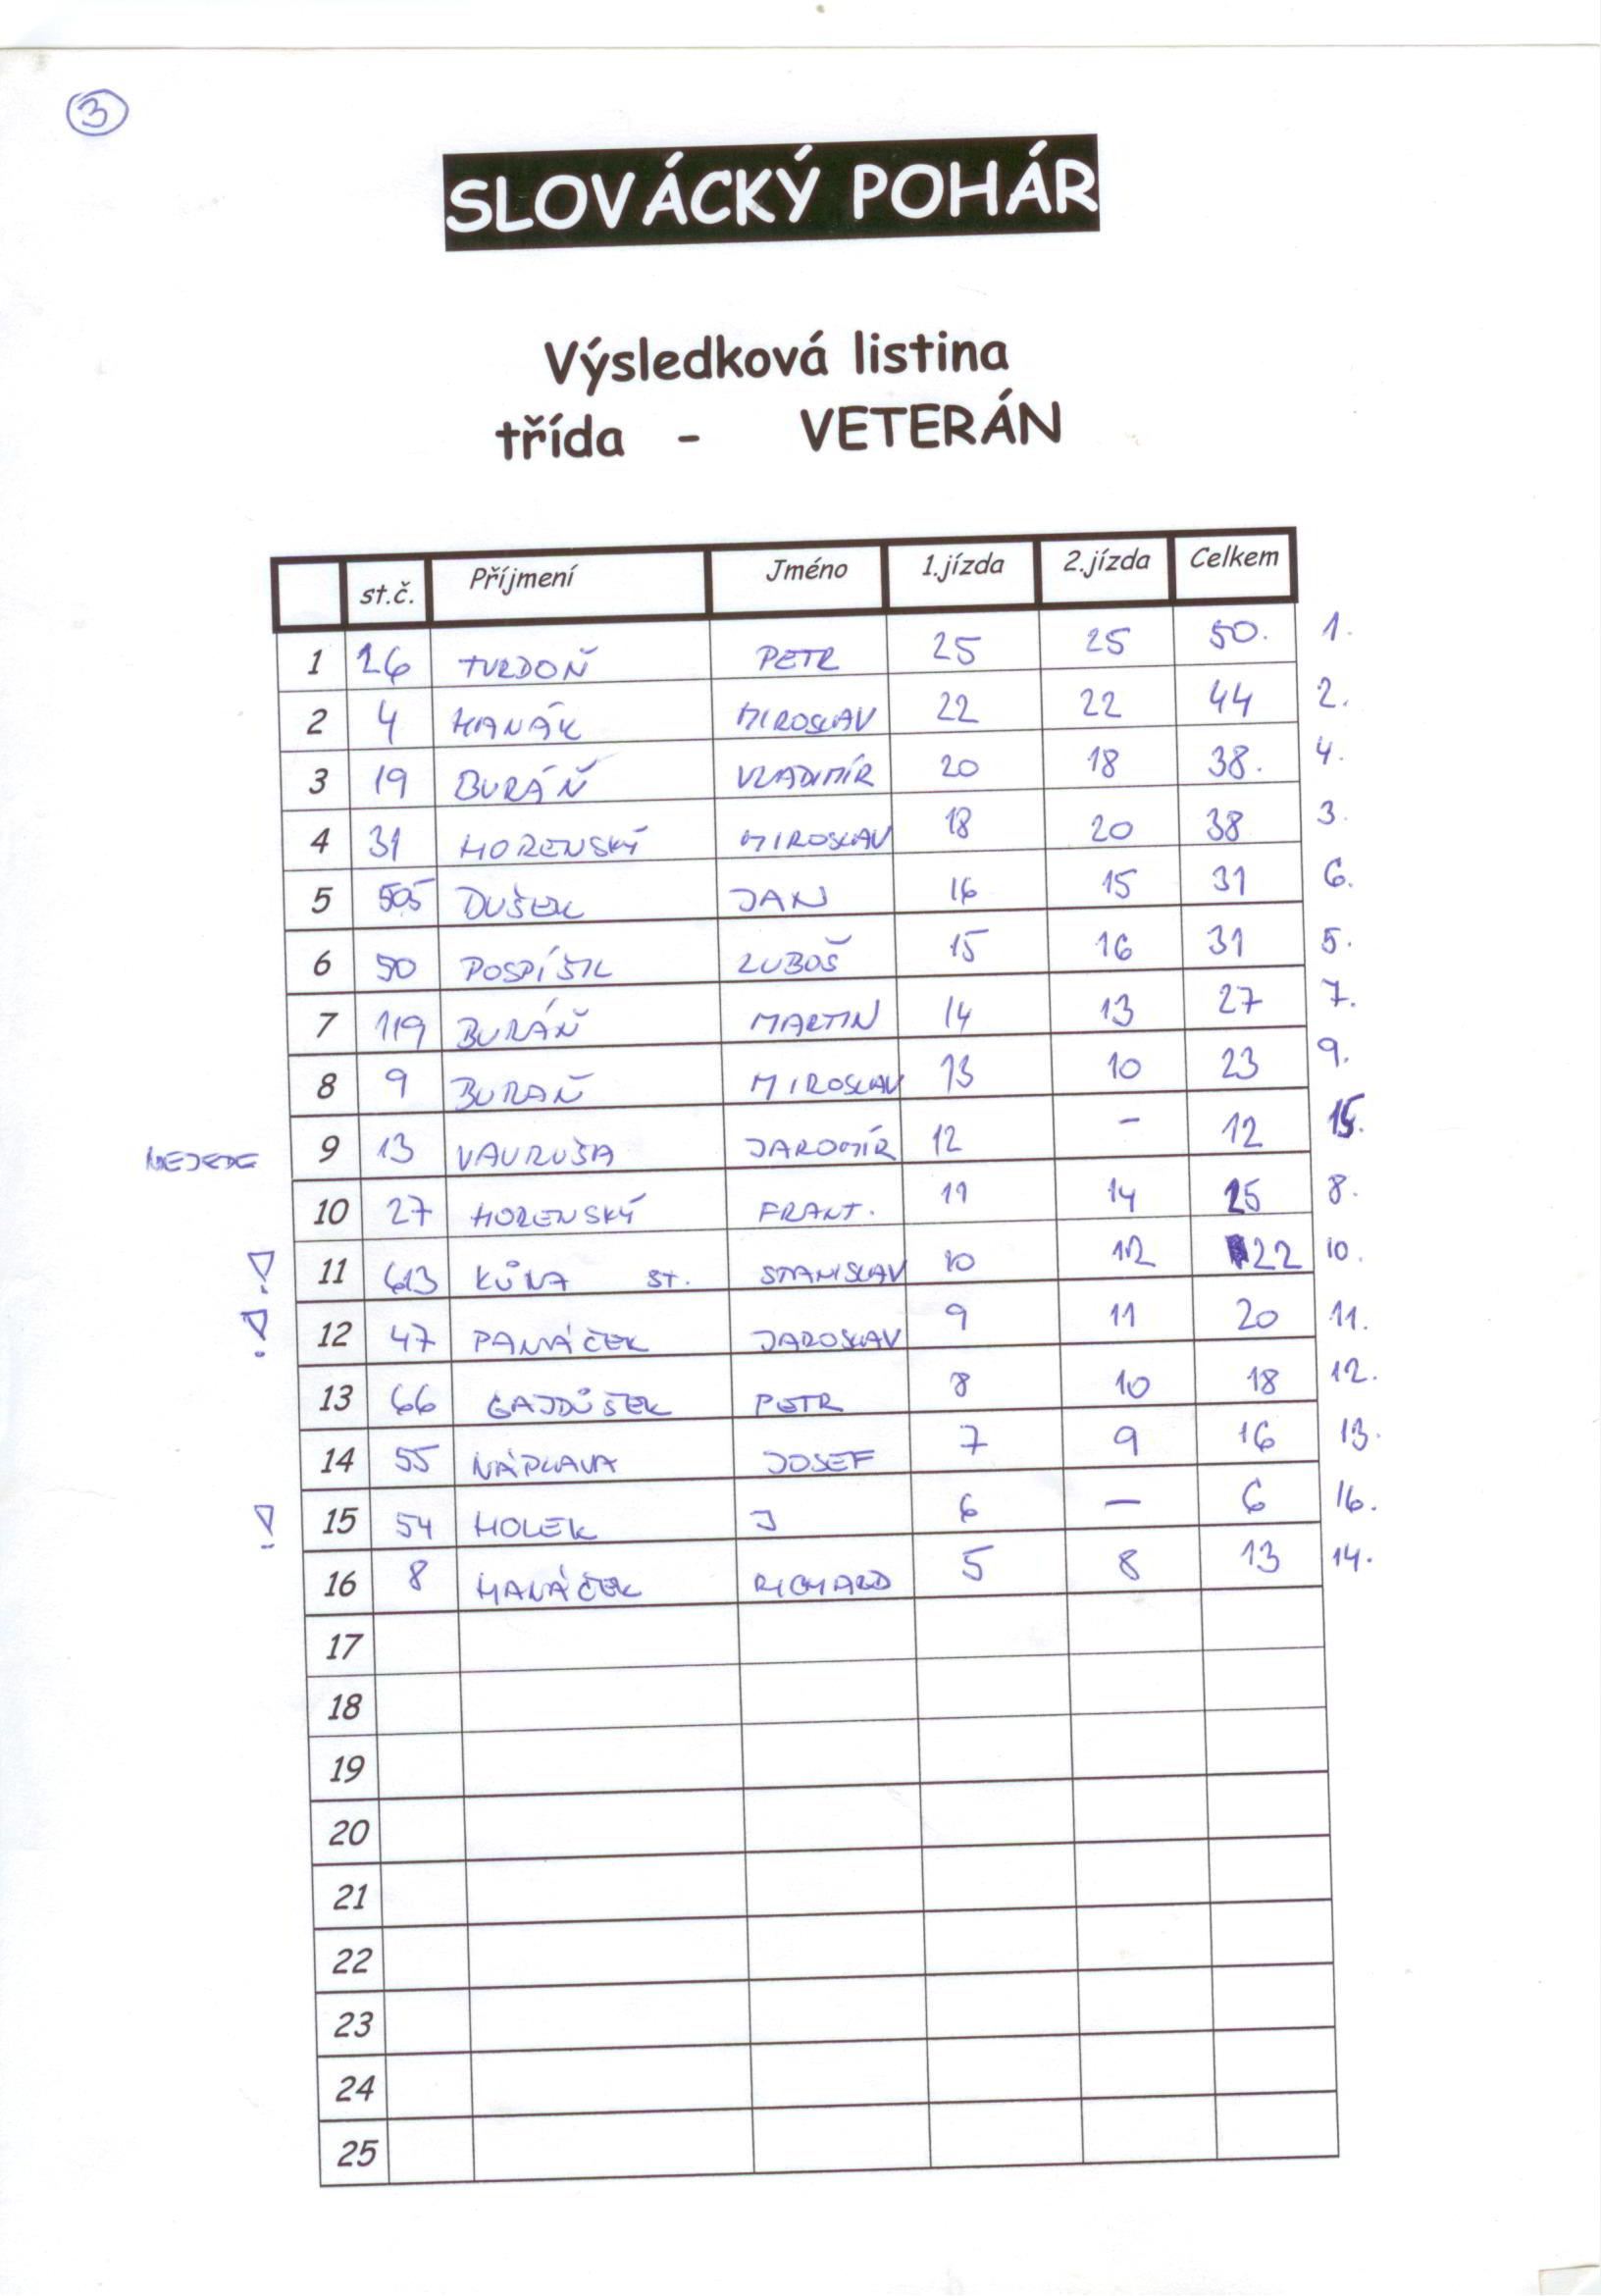 3
SLOVÁCKÝ POHÁR
Výsledková listina
třída - VETERÁN
st.č. Příjmení Jméno 1.jízda 2.jízda Celkem
1 26 TURDOŇ PETR 25 25 50. 1.
2 4 HANÁK MIROSLAV 22 22 44 2.
3 19 BURÁŇ VLADIMÍR 20 18 38. 4.
4 31 HORENSKÝ MIROSLAV 18 20 38 3.
5 505 DUŠEK JAN 16 15 31 6.
6 50 POSPÍŠIL LUBOŠ 15 16 31 5.
7 119 BURÁŇ MARTIN 14 13 27 7.
8 9 BURAŇ MIROSLAV 13 10 23 9.
NEJEDE 9 13 VAVRUŠA JAROMÍR 12 - 12 15.
10 27 HORENSKÝ FRANT. 11 14 25 8.
! 11 613 KŮRA ST. STANISLAV 10 12 22 10.
! 12 47 PANÁČEK JAROSLAV 9 11 20 11.
13 66 GAJDŮŠEK PETR 8 10 18 12.
14 55 NÁPLAVA JOSEF 7 9 16 13.
! 15 54 HOLEK J 6 — 6 16.
16 8 HANÁČEK RICHARD 5 8 13 14.
17
18
19
20
21
22
23
24
25